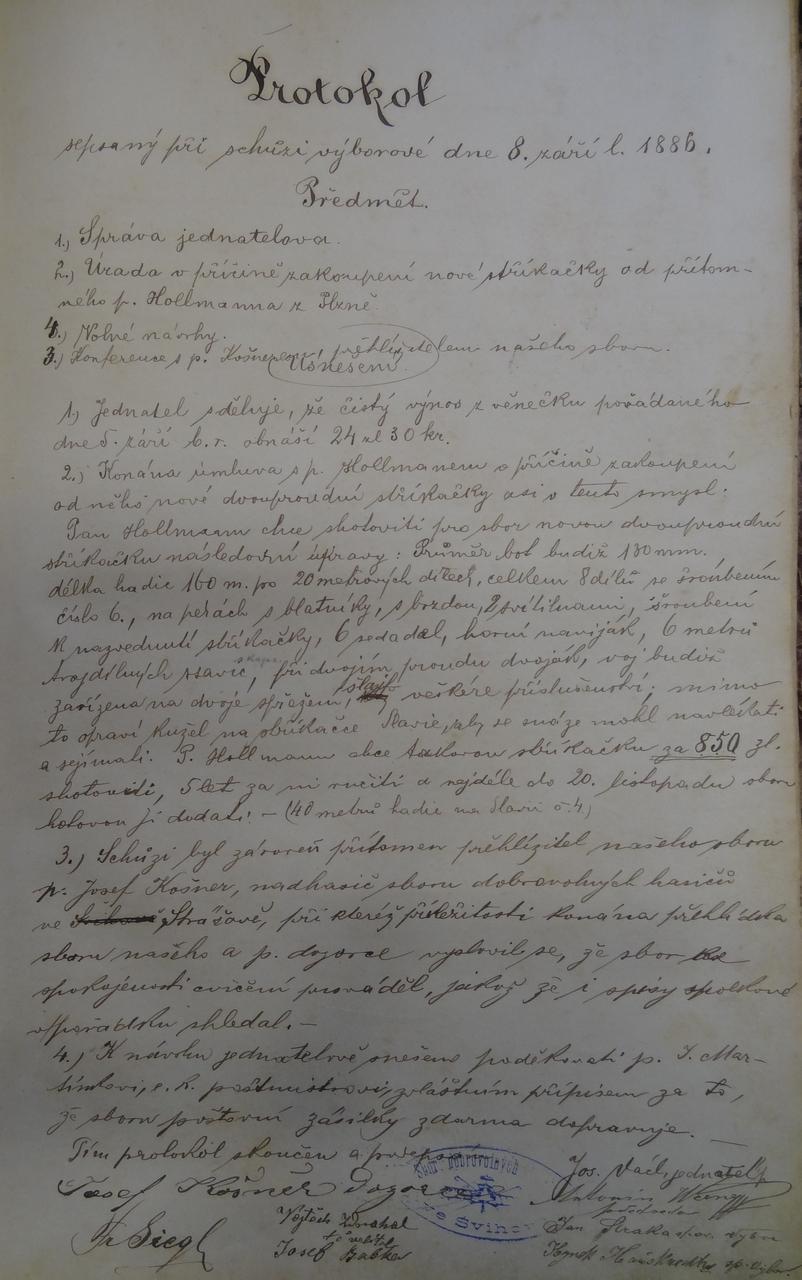 Protokol
sepsaný při schůzi výborové dne 8. září l. 1886.
Předmět.
1.) Správa jednatelova.
2.) Úrada v příčině zakoupení nové stříkačky od přítom-
ného p. Hollmanna z Plzně.
4.) Volné návrhy.
3.) Konference s p. Košnerem, přehlížitelem našeho sboru.
Usnešení
1.) Jednatel sděluje, že čistý výnos z věnečku pořádaného
dne 5. září b. r. obnáší 24 zl 30 kr.
2.) Konána úmluva s p. Hollmanem v příčině zakoupení
od něho nové dvouproudní stříkačky asi v tento smysl:
Pan Hollmann chce shotoviti pro sbor novou dvouproudní
stříkačku následovní úpravy: Průměr bot budiž 130 mm.
délka hadic 160 m. po 20 metrových dílech, celkem 8 dílů se šroubením
číslo 6., na pérách s blatníky, s brzdou, 2 svítilnami, šroubení
k nazvednutí stříkačky, 6 sedadel, horní naviják, 6 metrů
trojdílných ssavic, při dvojím proudu dvoják, voj budiž
zařízena na dvoje spřežení, veškéré příslušenství; mimo
to opraví kužel na stříkačce Slavie, aby se snáze mohl navlékati
a sejímati. P. Hollmann chce takovou stříkačku za 850 zl.
shotoviti, 5 let za ni ručiti a nejdéle do 20. listopadu sboru
hotovou ji dodati. – (40 metrů hadic na Slavii č. 4.)
3.) Schůzi byl zároveň přítomen přehlížitel našeho sboru
p. Josef Košner, nadhasič sboru dobrovolných hasičů
ve Strášově, při kteréž příležitosti konána přehlídka
sboru našeho a p. dozorce vyslovil se, že sbor
spokojenosti cvičení prováděl, jakož že i spisy spolkové
v pořádku shledal. –
4.) K návrhu jednatelově snešeno poděkovati p. J. Mar-
tínkovi, c. k. poštmistrovi, zvláštním přípisem za to,
že sboru poštovní zásilky zdarma dopravuje. —
Tím protokol skončen a podepsán
Josef Košner Dozorce
Jos. Václ, jednatel
Antonín
předseda
Vojtěch
Jan Straka spol. výbor
Fr Siegl
velitel
Josef Babka
Hynek
dobrovolných
ve Svihov